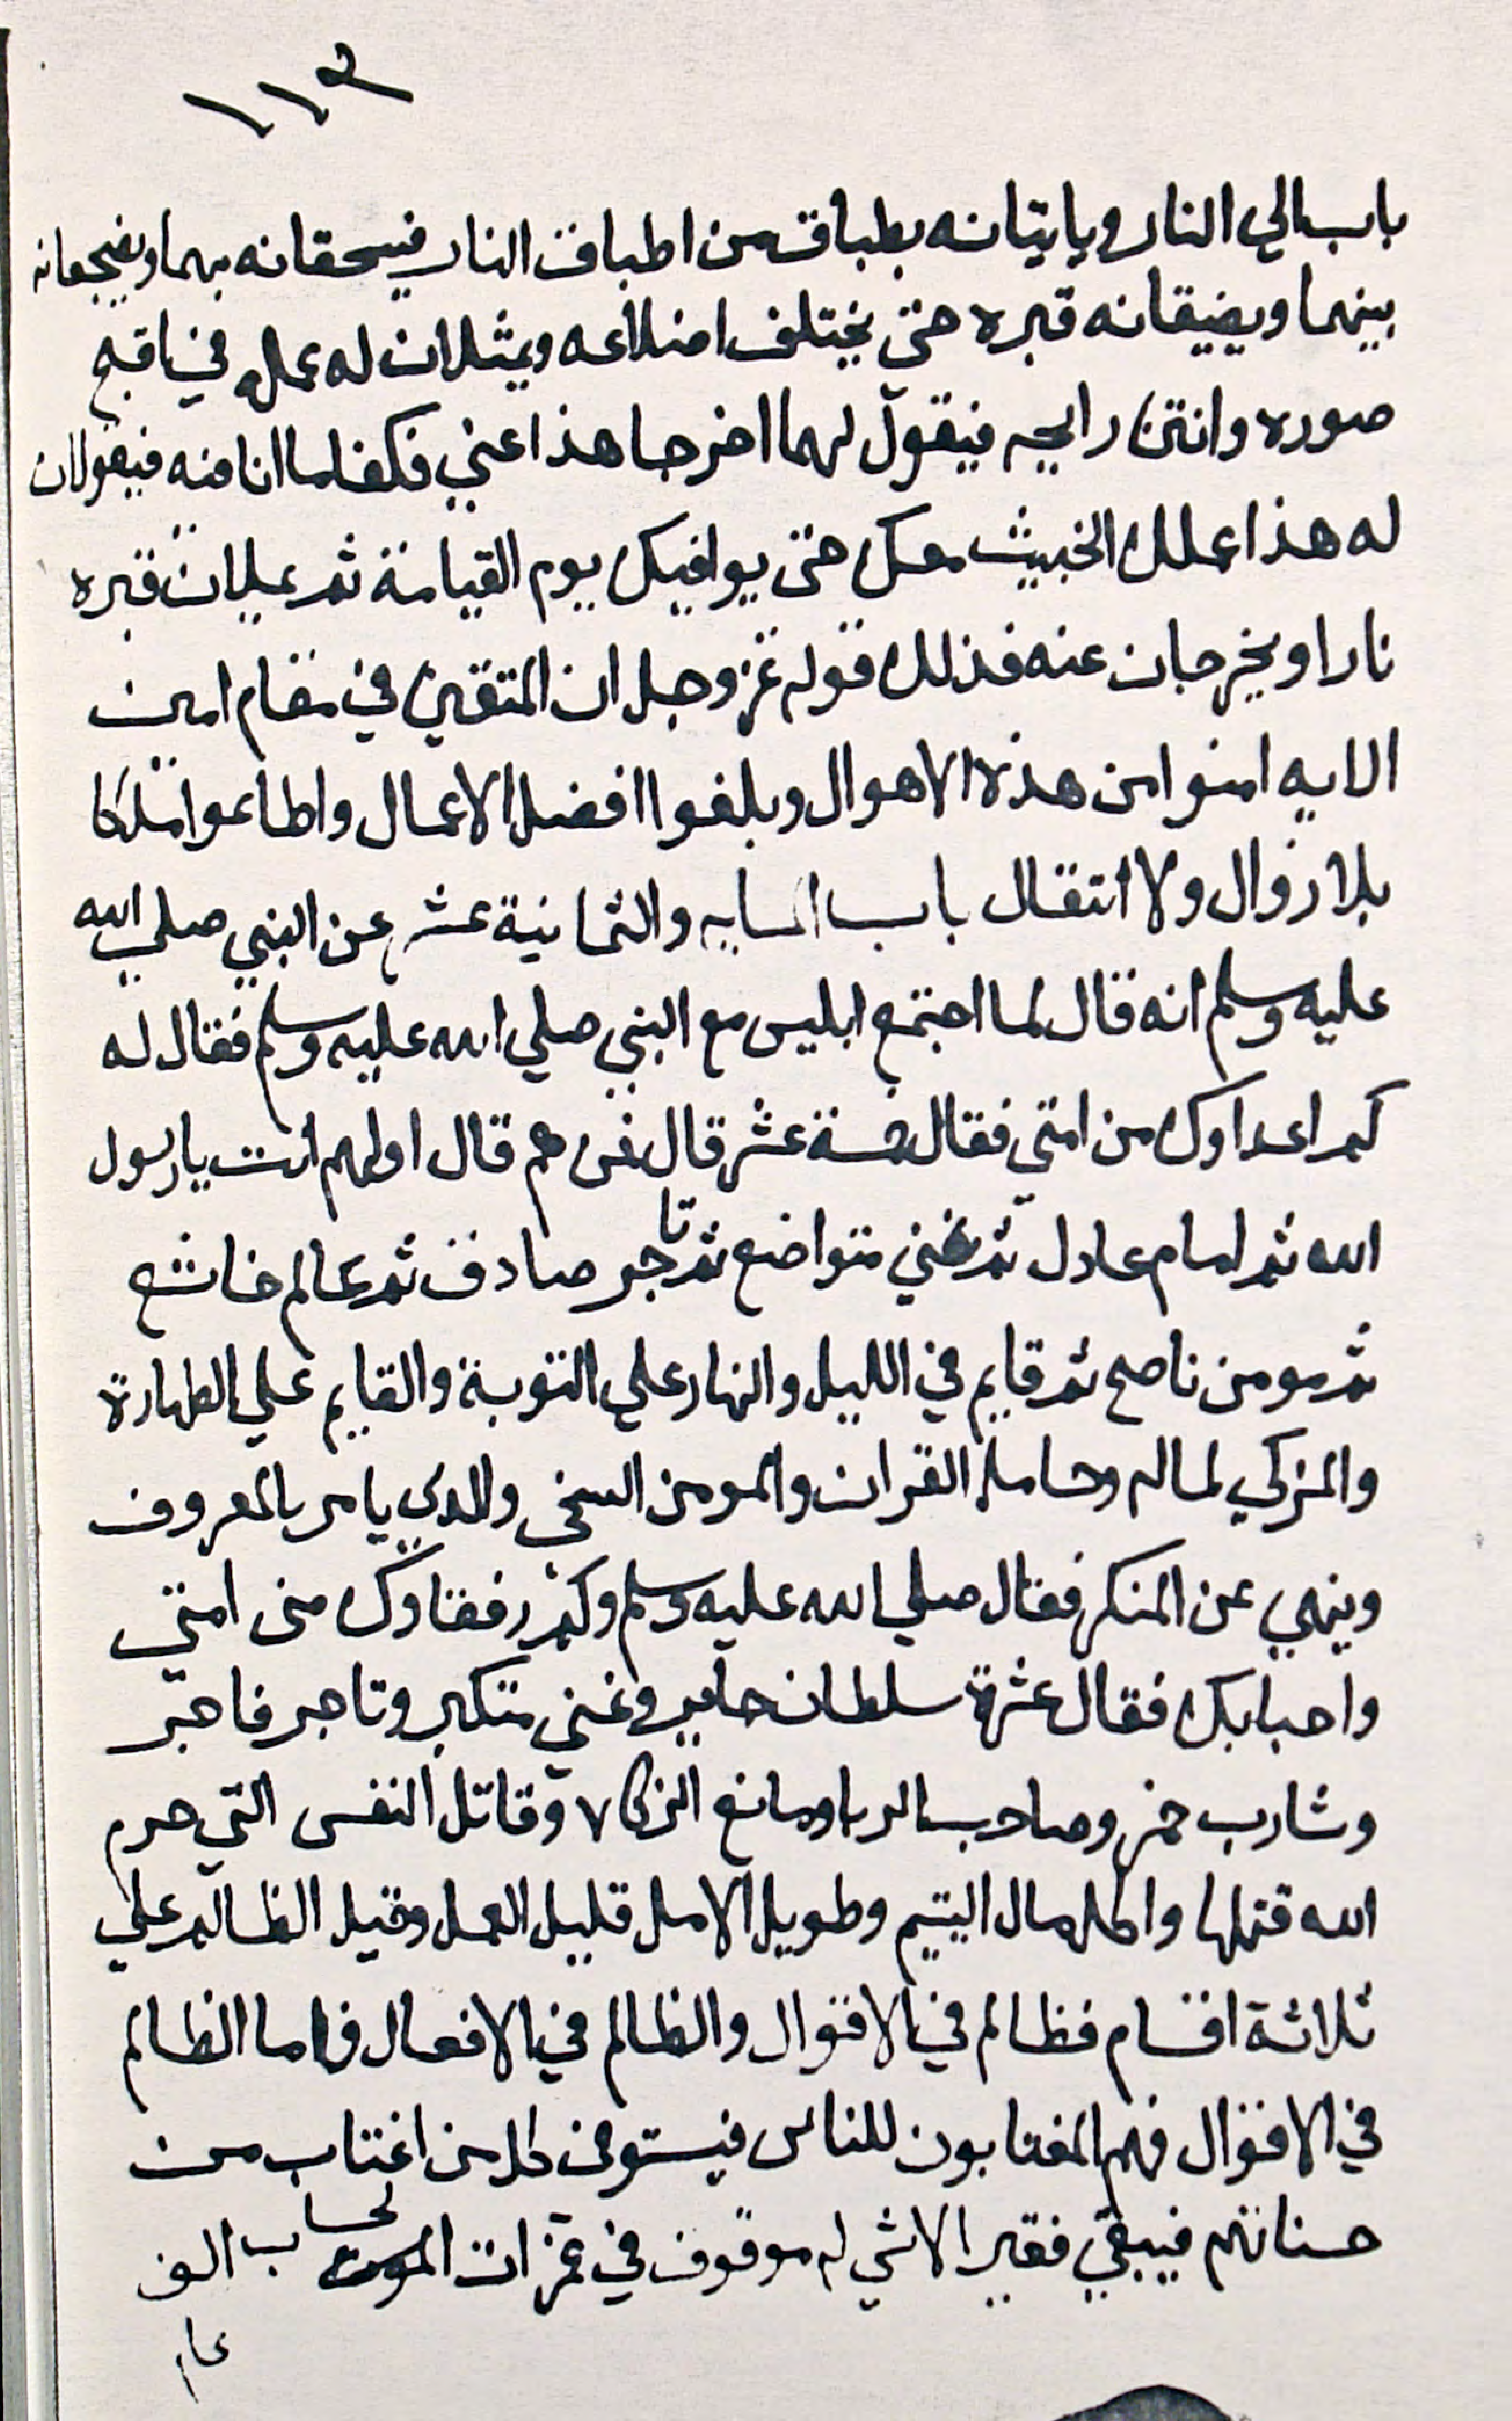 ١١٣
باب الي النار وياتيانه بطباق من اطباق النار فيسحقانه بهما ويضجعانه
بينهما ويضيقانه قبره حتى يختلف اضلاعه ويمثلان له عمله في اقبح
صوره وانتن رايحه فيقول لهما اخرجا هذا عني فكفاما انا منه فيقولان
له هذا عملك الخبيث معك حتى يوافيك يوم القيامة ثم يملان قبره
نارا ويخرجان عنه فذلك قوله عز وجل ان المتقين في مقام امين
الايه امنوا من هذه الاهوال وبلغوا افضل الاعمال واطاعوا ملكا
بلا زوال ولا انتقال باب المايه والثمانية عشر عن النبي صلي الله
عليه وسلم انه قال لما اجتمع ابليس مع النبي صلي الله عليه وسلم فقال له
كم اعداوك من امتي فقال خمسة عشر قال فمن هم قال اولهم انت يا رسول
الله ثم امام عادل ثم غني متواضع ثم تاجر صادق ثم عالم خاشع
ثم مومن ناصح ثم قايم في الليل والنهار علي التوبة والقايم علي الطهارة
والمزكي لماله وحامل القران والمومن السخي والدي يامر بالمعروف
وينهي عن المنكر فقال صلي الله عليه وسلم وكم رفقاوك من امتي
واحبابك فقال عشرة سلطان جاير وغني متكبر وتاجر فاجر
وشارب خمر وصاحب الربا ومانع الزكاه وقاتل النفس التي حرم
الله قتلها واكل مال اليتيم وطويل الامل قليل العمل وقيل الظالم علي
ثلاثة اقسام فظالم في الاقوال والظالم في الافعال فاما الظالم
في الاقوال فهم المغتابون للناس فيستوفى كل من اغتاب من
حسناتهم فيبقي فقير الاشي له موقوف في غمزات الموت لحساب الف
عام